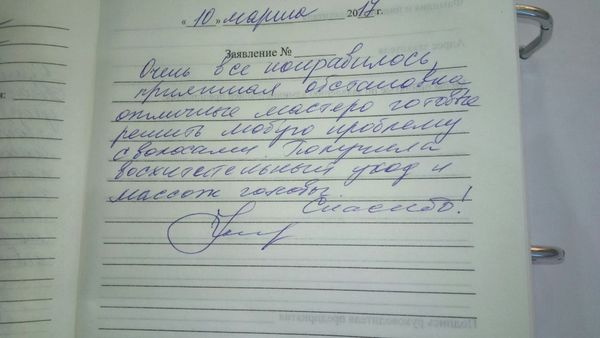 « 10 » марта 2017 г.
Заявление №
Очень все понравилось,
приятная обстановка,
отличные мастера готовые
решить любую проблему
с волосами. Получила
восхитительный уход и
массаж головы.
Спасибо!
Подпись руководителя предприятия